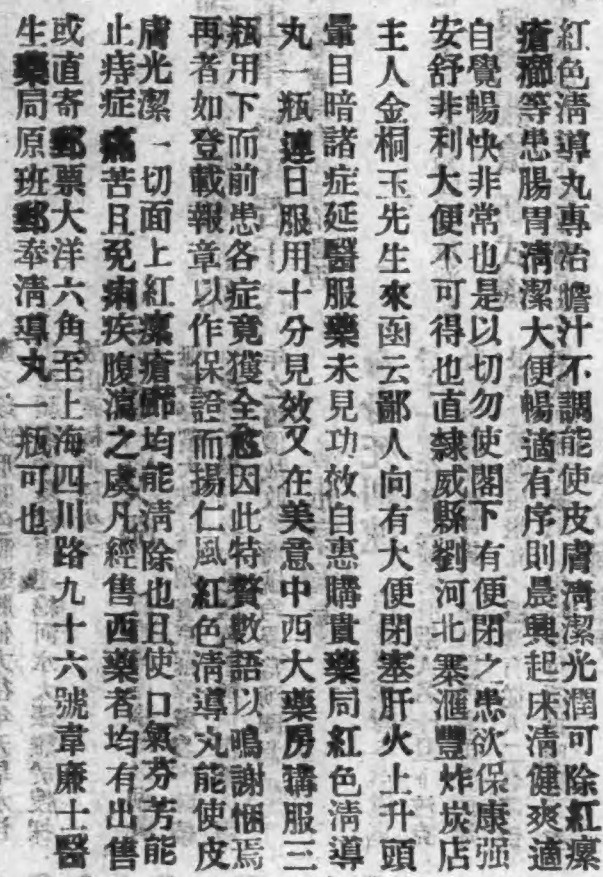 紅色淸導丸專治膽汁不調能使皮膚淸潔光潤可除紅瘰
瘡癤等患腸胃淸潔大便暢適有序則晨興起床淸健爽適
自覺暢快非常也是以切勿使閣下有便閉之患欲保康强
安舒非利大便不可得也直隸威縣劉河北寨滙豐炸炭店
主人金桐玉先生來函云鄙人向有大便閉塞肝火上升頭
暈目暗諸症延醫服藥未見功效自惠購貴藥局紅色淸導
丸一瓶連日服用十分見效又在美意中西大藥房購服三
瓶用下而前患各症竟獲全愈因此特贅數語以鳴謝悃焉
再者如登載報章以作保證而揚仁風紅色淸導丸能使皮
膚光潔一切面上紅瘰瘡癤均能淸除也且使口氣芬芳能
止痔症痛苦且免痢疾腹瀉之虞凡經售西藥者均有出售
或直寄郵票大洋六角至上海四川路九十六號韋廉士醫
生藥局原班郵奉淸導丸一瓶可也